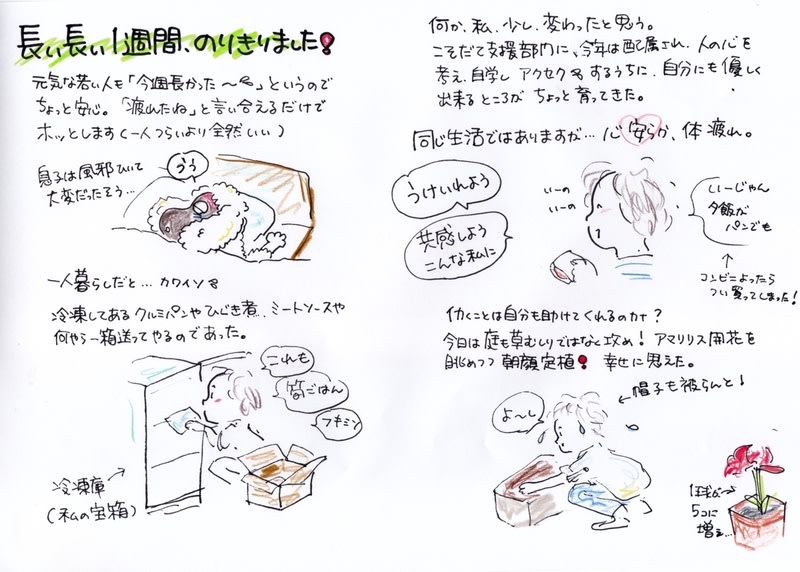 長い長い1週間、のりきりました!
元気な若い人も「今週長かった〜」というので
ちょっと安心。「疲れたね」と言い合えるだけで
ホッとします(一人つらいより全然いい)
息子は風邪ひいて
大変だったそう…
うう
一人暮らしだと…カワイソ
冷凍してあるクルミパンやひじき煮、ミートソースや
何やら一箱送ってやるのであった。
これも
筍ごはん
フキミソ
冷凍庫
(私の宝箱)
何か、私、少し、変わったと思う。
こそだて支援部門に、今年は配属され、人の心を
考え、自学し アクセクするうちに、自分にも優しく
出来るところが ちょっと育ってきた。
同じ生活ではありますが…心 安らか、体 疲れ。
うけいれよう
共感しよう
こんな私に
いーの
いーの
いーじゃん
夕飯が
パンでも
コンビニよったら
つい買ってしまった!
働くことは自分も助けてくれるのか?
今日は庭も草むしりではなく攻め! アマリリス開花を
眺めつつ 朝顔定植! 幸せに思えた。
帽子も被らんと!
よ〜し
1球から
5コに
増え…